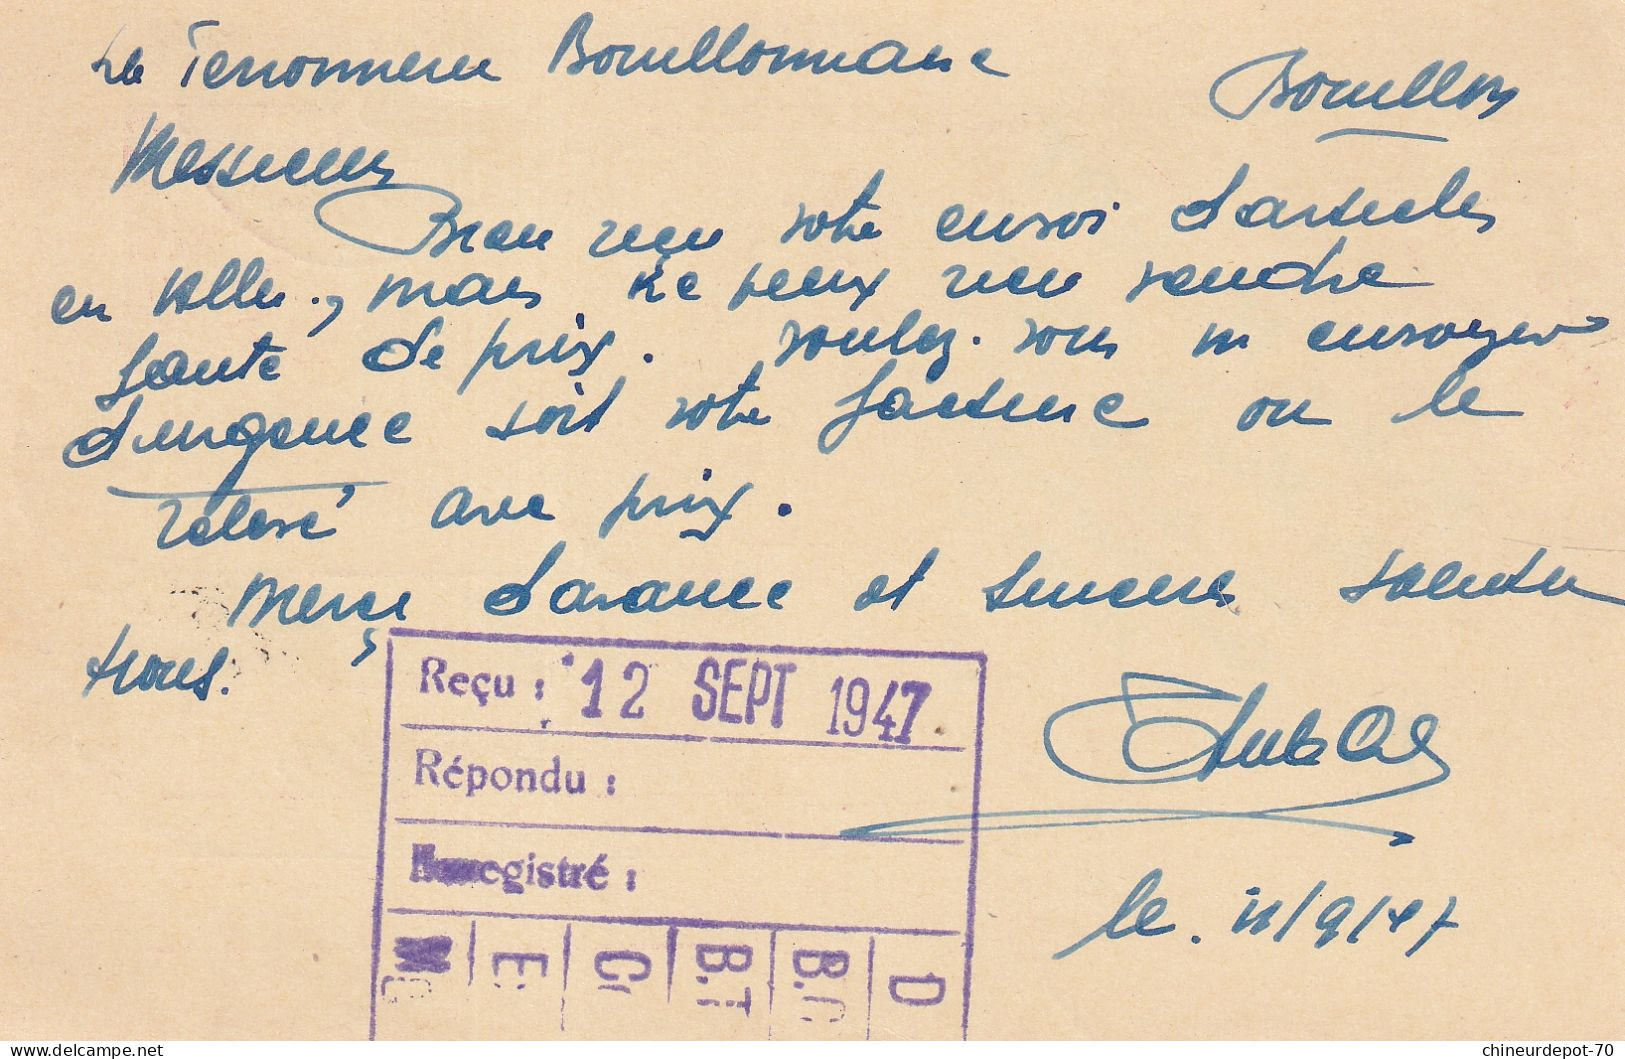 La Ferronnerie Bouillonnaise
Bouillon
Messieurs
Bien reçu votre envoi d'articles
en , mais ne peux rien vendre
faute de prix. voulez-vous m'envoyer
d'urgence soit votre facture ou le
relevé avec prix.
Merci d'avance et sincères saluta
tions.
Reçu : 12 SEPT 1947
Répondu :
egistré :
E. C B.T B.C D
le. 11/9/47
delcampe.net
chineurdepot-70